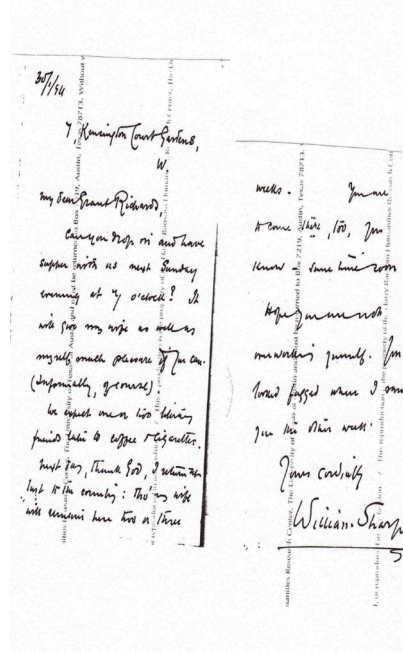 30/1/94
7, Kensington Court Gardens,
W
My dear Grant Richards,
Can you drop in and have
supper with us next Sunday
evening at 7 o'clock? It
will give my wife as well as
myself much pleasure if you can.
(Informally, of course)
We expect one or two literary
friends later to coffee & cigarettes.
Next day, thank God, I return
to the country: tho' my wife
will remain here two or three
weeks. You are
to come there, too, you
know — some time soon
Hope you are not
overworking yourself. You
looked fagged when I saw
you the other week.
Yours cordially
William Sharp